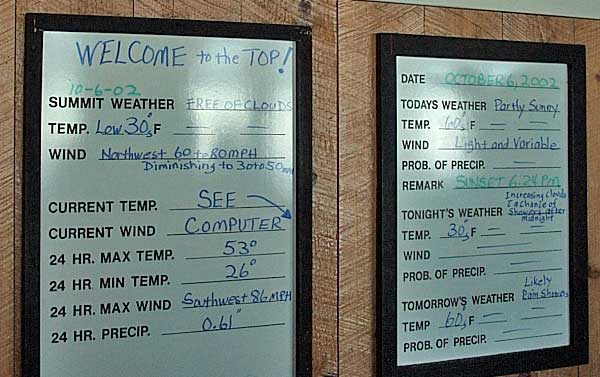 WELCOME to the TOP!
10-6-02
SUMMIT WEATHER FREE OF CLOUDS
TEMP. Low 30°s F
WIND Northwest 60 to 80 MPH
Diminishing to 30 to 50 MPH
CURRENT TEMP. SEE
CURRENT WIND COMPUTER
24 HR. MAX TEMP. 53°
24 HR. MIN TEMP. 26°
24 HR. MAX WIND Southwest 86 MPH
24 HR. PRECIP. 0.61"
DATE OCTOBER 6, 2002
TODAYS WEATHER Partly Sunny
TEMP. 60°s F
WIND Light and Variable
PROB. OF PRECIP.
REMARK SUNSET 6:24 PM
Increasing Clouds
& a Chance of
TONIGHT'S WEATHER Showers after
Midnight
TEMP. 30°s F
WIND
PROB. OF PRECIP.
Likely
TOMORROW'S WEATHER Rain Showers
TEMP 60°s F
PROB. OF PRECIP.